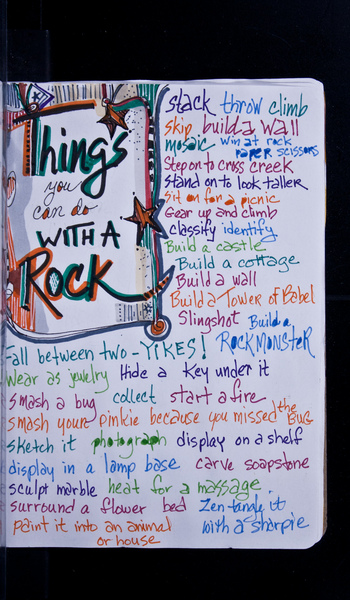 Things
you
can do
WITH A
Rock
stack throw climb
skip build a wall
mosaic win at rock
paper scissors
Step on to cross creek
Stand on to look taller
Sit on for a picnic
Gear up and climb
classify identify
Build a castle
Build a cottage
Build a wall
Build a Tower of Babel
Slingshot Build a
ROCK MONSTER
Fall between two - YIKES!
Wear as jewelry Hide a Key under it
smash a bug collect start a fire
smash your pinkie because you missed the BUG
sketch it photograph display on a shelf
display in a lamp base carve soapstone
sculpt marble heat for a massage
surround a flower bed Zentangle it
with a sharpie
paint it into an animal
or house